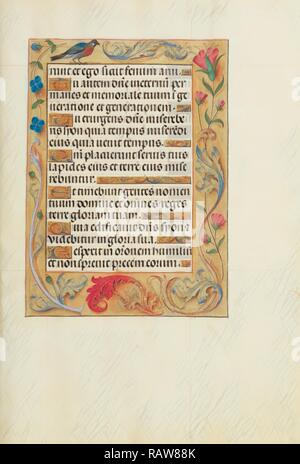 nunc et ego sicut fenum arui.
u autem dñe ineternū per
manes et memoriale tuum ī ge
neratione et generationem.
u exurgens dñe misere be
ris syon quia tempus miserēdi
eius quia uenit tempus.
m placuerunt seruis tuis
lapides eius et terre eius mise
rebuntur.
t timebunt gentes nomen
tuum domine et omnes reges
terre gloriam tuam.
uia edificauit dñs syon a
videbitur in gloria sua.
espexit in orōnem humiliū
et non spreuit precem eorum.
alamy
Image ID: RAW88K
www.alamy.com